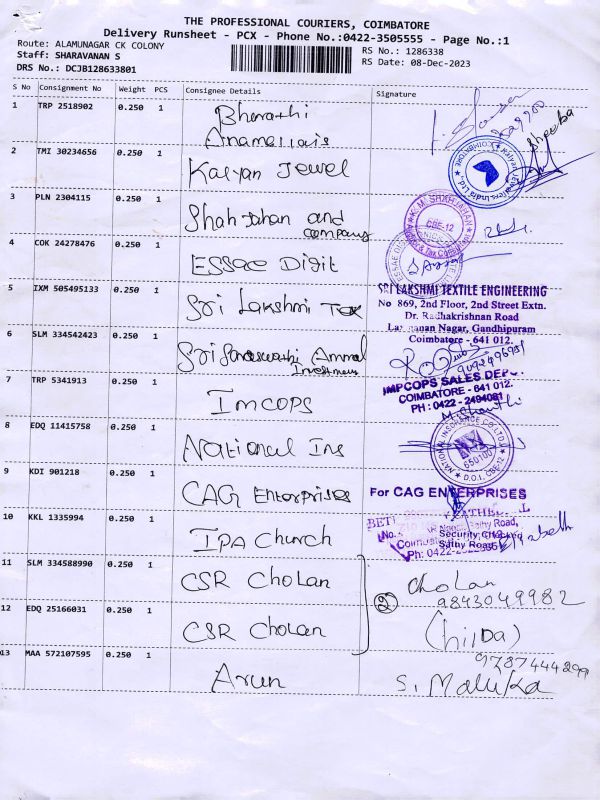 THE PROFESSIONAL COURIERS, COIMBATORE
Delivery Runsheet - PCX - Phone No.:0422-3505555 - Page No.:1
Route: ALAMUNAGAR CK COLONY
Staff: SHARAVANAN S
DRS No.: DCJB128633801
RS No.: 1286338
RS Date: 08-Dec-2023
S No Consignment No Weight PCS Consignee Details Signature
1 TRP 2518902 0.250 1 Bharathi
Anamallais
Sheeba
2 TMI 30234656 0.250 1 Kalyan Jewel
3 PLN 2304115 0.250 1 Shah Jahan and
company
K.M. SHAHJAHAN
CBE-12
4 COK 24278476 0.250 1 ESSAE Digit
5 IXM 505495133 0.250 1 Sri Lakshmi Tex
SRI LAKSHMI TEXTILE ENGINEERING
No 869, 2nd Floor, 2nd Street Extn.
Dr. Radhakrishnan Road
Nagar, Gandhipuram
Coimbatore - 641 012.
6 SLM 334542423 0.250 1 Sri Saraswathi Ammal
Investment
7 TRP 5341913 0.250 1 Imcops
IMPCOPS SALES DEPOT
COIMBATORE - 641 012.
PH : 0422 - 2494081
8 EDQ 11415758 0.250 1 National Ins
NATIONAL INSURANCE CO LTD
650100
D.O.I. CBE-12
9 KDI 901218 0.250 1 CAG Enterprises
For CAG ENTERPRISES
10 KKL 1335994 0.250 1 IPA Church
Sathy Road,
Security
Sathy Road
Ph: 0422-
11 SLM 334588990 0.250 1 CSR Cholan
2 Cholan
9843049982
12 EDQ 25166031 0.250 1 CSR Cholan
(hilda)
9787444299
13 MAA 572107595 0.250 1 Arun
S. Mallika